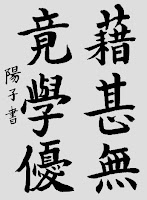 藉甚無
竟學優
陽子書